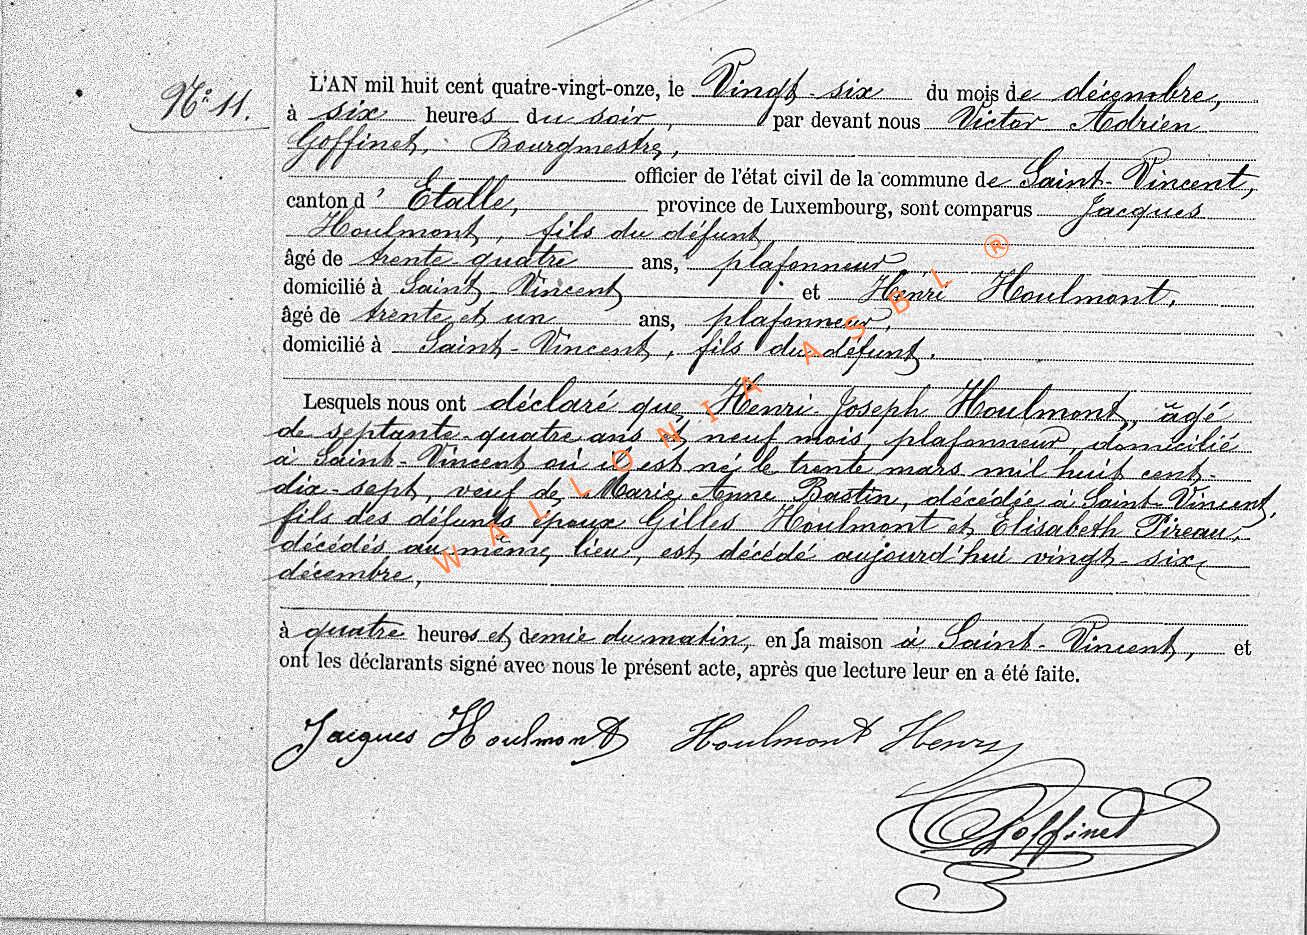 N° 11.
L'AN mil huit cent quatre-vingt-onze, le Vingt-six du mois de décembre,
à six heures du soir, par devant nous Victor Adrien
Goffinet, Bourgmestre,
officier de l'état civil de la commune de Saint-Vincent,
canton d'Etalle, province de Luxembourg, sont comparus Jacques
Houlmont, fils du défunt
âgé de trente quatre ans, plafonneur,
domicilié à Saint Vincent et Henri Houlmont,
âgé de trente et un ans, plafonneur,
domicilié à Saint-Vincent, fils du défunt.
Lesquels nous ont déclaré que Henri-Joseph Houlmont, âgé
de septante-quatre ans et neuf mois, plafonneur, domicilié
à Saint-Vincent où il est né le trente mars mil huit cent
dix-sept, veuf de Marie Anne Bastin, décédée à Saint-Vincent,
fils des défunts époux Gilles Houlmont et Elisabeth Pireau,
décédés au même lieu, est décédé aujourd'hui vingt-six
décembre,
à quatre heures et demie du matin, en sa maison à Saint-Vincent, et
ont les déclarants signé avec nous le présent acte, après que lecture leur en a été faite.
Jacques Houlmont Houlmont Henry
Goffinet
WALLONIA ASBL ®